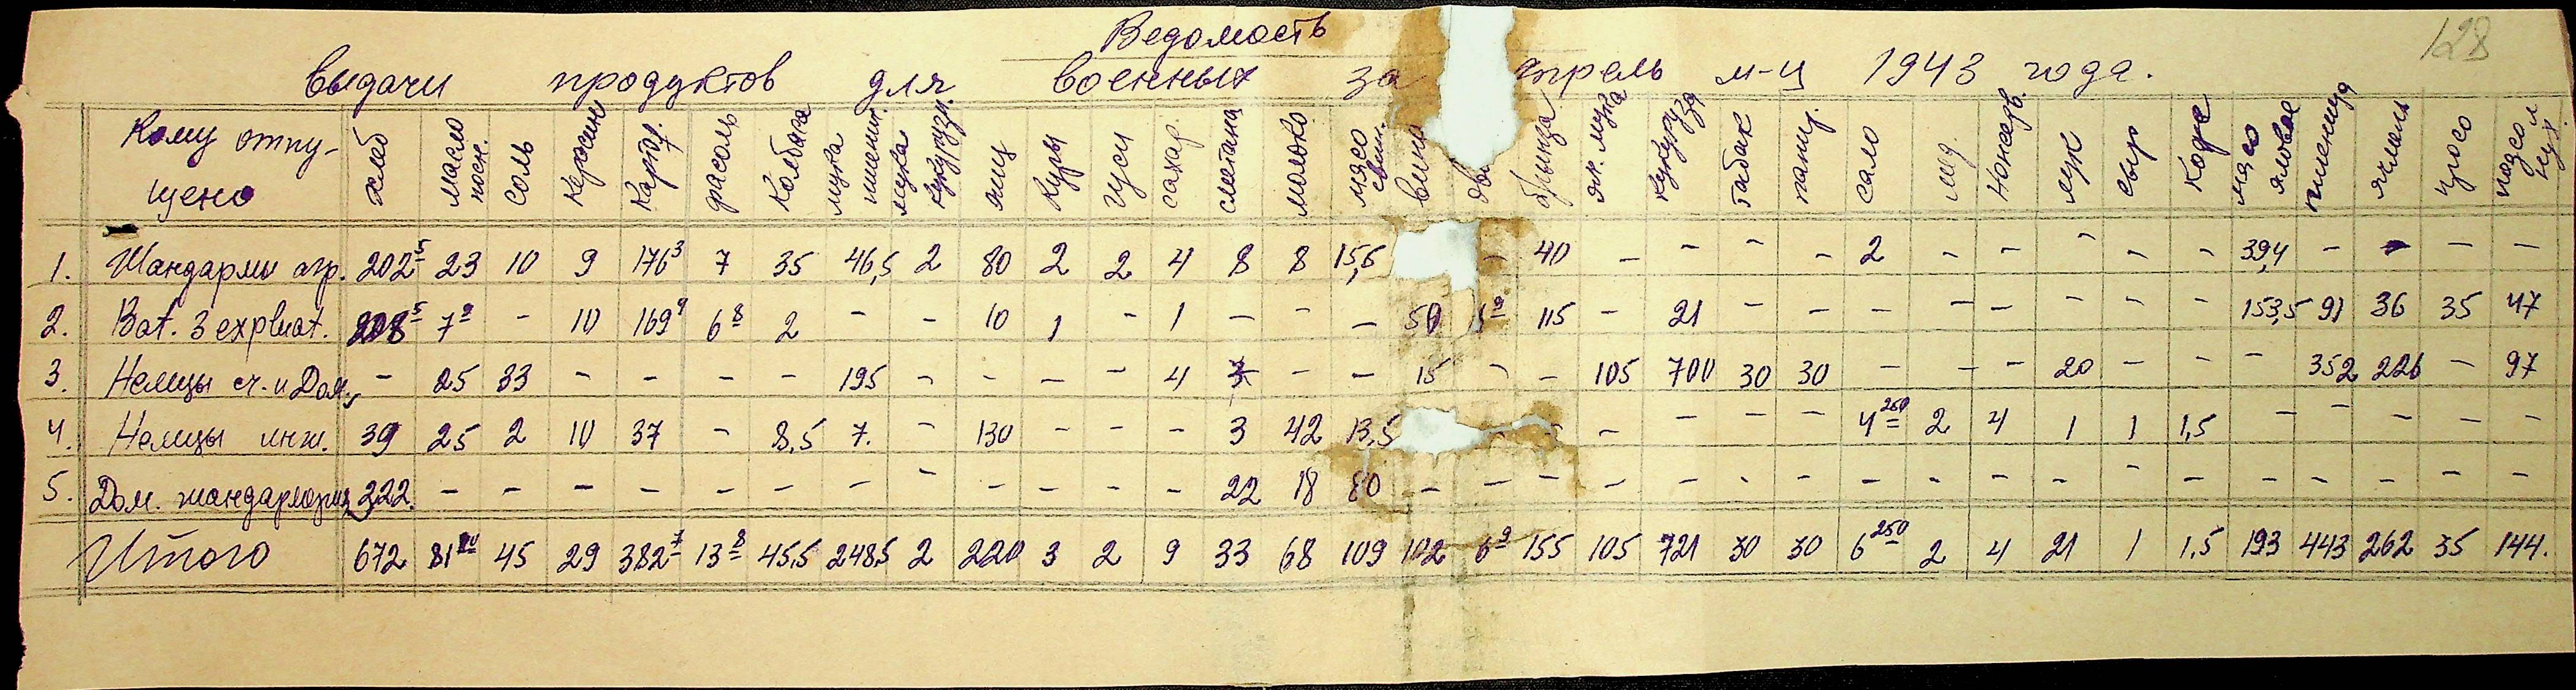 128
Ведомость
выдачи продуктов для военных за апрель м-ц 1943 года.
Кому отпущено хлеб масло посн. соль керосин картоф. фасоль колбаса мука пшенич. мука кукурузн. яиц куры гуси сахар. сметана молоко мясо свин. вина брынза яч. мука кукуруза табак папир. сало мед. консерв. лук сыр кофе мясо яловое пшеница ячмень просо
1. Жандармы агр. 202⁵ 23 10 9 176³ 7 35 46,5 2 80 2 2 4 8 8 15,6 - 40 - - - - 2 - - - - - 39,4 - - - -
2. Bat. 3 expluat. 208⁵ 7⁹ - 10 169⁹ 6⁸ 2 - - 10 1 - 1 - - - 50 115 - 21 - - - - - - - - 153,5 91 36 35 47
3. Немцы сч. и Дом. - 25 33 - - - - 195 - - - - 4 - - 15 - - 105 700 30 30 - - - 20 - - - 352 226 - 97
4. Немцы инж. 39 25 2 10 37 - 8,5 7. - 130 - - - 3 42 13,5 - - - - - - 4²⁵⁰ 2 4 1 1 1,5 - - - - -
5. Дом. жандармерия 222. - - - - - - - - - - - - 22 18 80 - - - - - - - - - - - - - - - - - -
Итого 672 81 45 29 382⁷ 13⁸ 45,5 248,5 2 220 3 2 9 33 68 109 102 6⁹ 155 105 721 30 30 6²⁵⁰ 2 4 21 1 1,5 193 443 262 35 144.